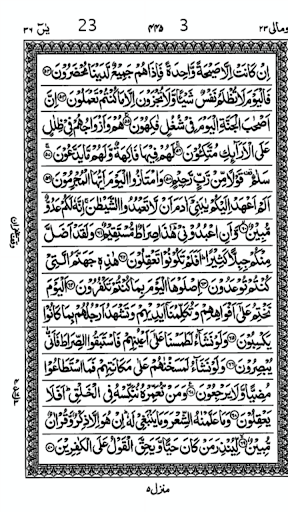 ومالي ٢٣ 3 ٤٤٥ 23 يٰسٓ ٣٦
اِنْ كَانَتْ اِلَّا صَيْحَةً وَّاحِدَةً فَاِذَا هُمْ جَمِيْعٌ لَّدَيْنَا مُحْضَرُوْنَ ۝٥٣
فَالْيَوْمَ لَا تُظْلَمُ نَفْسٌ شَيْـًٔا وَّلَا تُجْزَوْنَ اِلَّا مَا كُنْتُمْ تَعْمَلُوْنَ ۝٥٤ اِنَّ
اَصْحٰبَ الْجَنَّةِ الْيَوْمَ فِيْ شُغُلٍ فٰكِهُوْنَ ۝٥٥ هُمْ وَاَزْوَاجُهُمْ فِيْ ظِلٰلٍ
عَلَى الْاَرَآىِٕكِ مُتَّكِـُٔوْنَ ۝٥٦ لَهُمْ فِيْهَا فَاكِهَةٌ وَّلَهُمْ مَّا يَدَّعُوْنَ ۝٥٧
سَلٰمٌ ۫ قَوْلًا مِّنْ رَّبٍّ رَّحِيْمٍ ۝٥٨ وَامْتَازُوا الْيَوْمَ اَيُّهَا الْمُجْرِمُوْنَ ۝٥٩
اَلَمْ اَعْهَدْ اِلَيْكُمْ يٰبَنِيْٓ اٰدَمَ اَنْ لَّا تَعْبُدُوا الشَّيْطٰنَ ۚ اِنَّهٗ لَكُمْ عَدُوٌّ
مُّبِيْنٌ ۝٦٠ وَّاَنِ اعْبُدُوْنِيْ ؔ هٰذَا صِرَاطٌ مُّسْتَقِيْمٌ ۝٦١ وَلَقَدْ اَضَلَّ
مِنْكُمْ جِبِلًّا كَثِيْرًا ؕ اَفَلَمْ تَكُوْنُوْا تَعْقِلُوْنَ ۝٦٢ هٰذِهٖ جَهَنَّمُ الَّتِيْ
كُنْتُمْ تُوْعَدُوْنَ ۝٦٣ اِصْلَوْهَا الْيَوْمَ بِمَا كُنْتُمْ تَكْفُرُوْنَ ۝٦٤ اَلْيَوْمَ
نَخْتِمُ عَلٰٓى اَفْوَاهِهِمْ وَتُكَلِّمُنَآ اَيْدِيْهِمْ وَتَشْهَدُ اَرْجُلُهُمْ بِمَا كَانُوْا
يَكْسِبُوْنَ ۝٦٥ وَلَوْ نَشَآءُ لَطَمَسْنَا عَلٰٓى اَعْيُنِهِمْ فَاسْتَبَقُوا الصِّرَاطَ فَاَنّٰى
يُبْصِرُوْنَ ۝٦٦ وَلَوْ نَشَآءُ لَمَسَخْنٰهُمْ عَلٰى مَكَانَتِهِمْ فَمَا اسْتَطَاعُوْا
مُضِيًّا وَّلَا يَرْجِعُوْنَ ۝٦٧ وَمَنْ نُّعَمِّرْهُ نُنَكِّسْهُ فِي الْخَلْقِ ؕ اَفَلَا
يَعْقِلُوْنَ ۝٦٨ وَمَا عَلَّمْنٰهُ الشِّعْرَ وَمَا يَنْۢبَغِيْ لَهٗ ؕ اِنْ هُوَ اِلَّا ذِكْرٌ وَّقُرْاٰنٌ
مُّبِيْنٌ ۝٦٩ لِّيُنْذِرَ مَنْ كَانَ حَيًّا وَّيَحِقَّ الْقَوْلُ عَلَى الْكٰفِرِيْنَ ۝٧٠
وقف غفران
منزل ٥